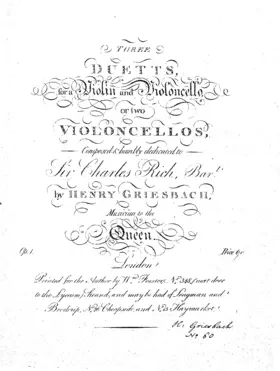 THREE
DUETTS,
for a Violin and Violoncello,
or two
VIOLONCELLOS,
Composed & humbly dedicated to
Sir Charles Rich, Bart.
by HENRY GRIESBACH,
Musician to the
Queen.
Op. 1. Price 6s
London
Printed for the Author by Wm. Forster, No. 348, (next door
to the Lyceum) Strand, and may be had of Longman and
Broderip, No. 26 Cheapside, and No. 13 Haymarket.
H. Griesbach
No 60